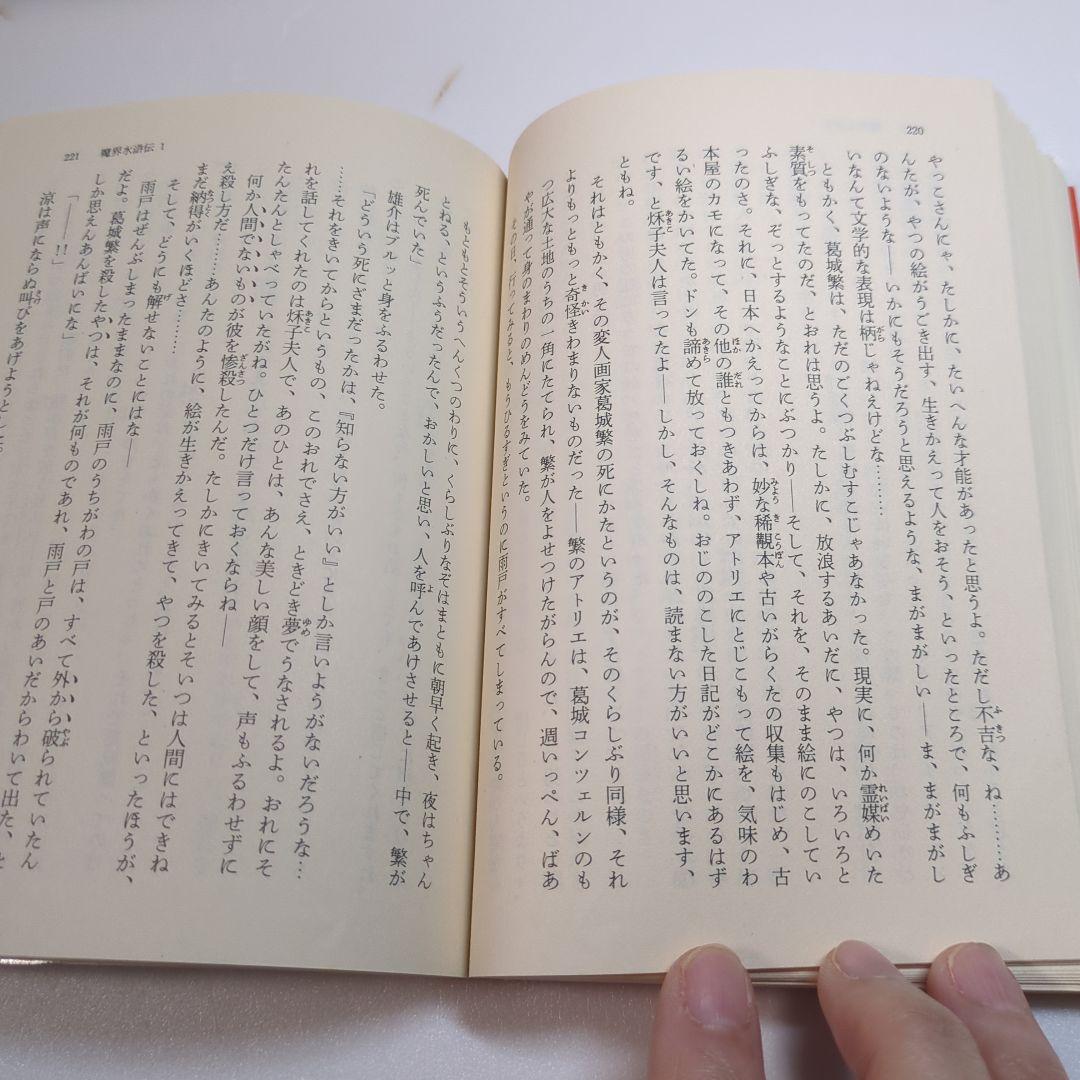 220
やっこさんにゃ、たしかに、たいへんな才能があったと思うよ。ただし不吉な、ね………あ
んたが、やつの絵がうごき出す、生きかえって人をおそう、といったところで、何もふしぎ
のないような――いかにもそうだろうと思えるような、まがまがしい――ま、まがまがし
いなんて文学的な表現は柄じゃねえけどな………
ともかく、葛城繁は、ただのごくつぶしむすこじゃあなかった。現実に、何か霊媒めいた
素質をもってたのだ、とおれは思うよ。たしかに、放浪するあいだに、やつは、いろいろと
ふしぎな、ぞっとするようなことにぶつかり――そして、それを、そのまま絵にのこしてい
ったのさ。それに、日本へかえってからは、妙な稀覯本や古いがらくたの収集もはじめ、古
本屋のカモになって、その他の誰ともつきあわず、アトリエにとじこもって絵を、気味のわ
るい絵をかいてた。ドンも諦めて放っておくしね。おじののこした日記がどこかにあるはず
です、と炢子夫人は言ってたよ――しかし、そんなものは、読まない方がいいと思います、
ともね。
それはともかく、その変人画家葛城繁の死にかたというのが、そのくらしぶり同様、それ
よりもっともっと奇怪きわまりないものだった――繁のアトリエは、葛城コンツェルンのも
つ広大な土地のうちの一角にたてられ、繁が人をよせつけたがらんので、週いっぺん、ばあ
やが通って身のまわりのめんどうをみていた。
その日、行ってみると、もうひるすぎというのに雨戸がすべてしまっている。
221 魔界水滸伝 1
もともとそういうへんくつのわりに、くらしぶりなぞはまともに朝早く起き、夜はちゃん
とねる、というふうだったんで、おかしいと思い、人を呼んであけさせると――中で、繁が
死んでいた」
雄介はブルッと身をふるわせた。
「どういう死にざまだったかは、『知らない方がいい』としか言いようがないだろうな…
……それをきいてからというもの、このおれでさえ、ときどき夢でうなされるよ。おれにそ
れを話してくれたのは炢子夫人で、あのひとは、あんな美しい顔をして、声もふるわせずに
たんたんとしゃべっていたがね。ひとつだけ言っておくならね――
何か人間でないものが彼を惨殺したんだ。たしかにきいてみるとそいつは人間にはできね
え殺し方だ………あんたのように、絵が生きかえってきて、やつを殺した、といったほうが、
まだ納得がいくほどさ………
そして、どうにも解せないことにはな――
雨戸はぜんぶしまったままなのに、雨戸のうちがわの戸は、すべて外から破られていたん
だよ。葛城繁を殺したやつは、それが何ものであれ、雨戸と戸のあいだからわいて出た、と
しか思えんあんばいにな」
「――!!」
涼は声にならぬ叫びをあげようとした。